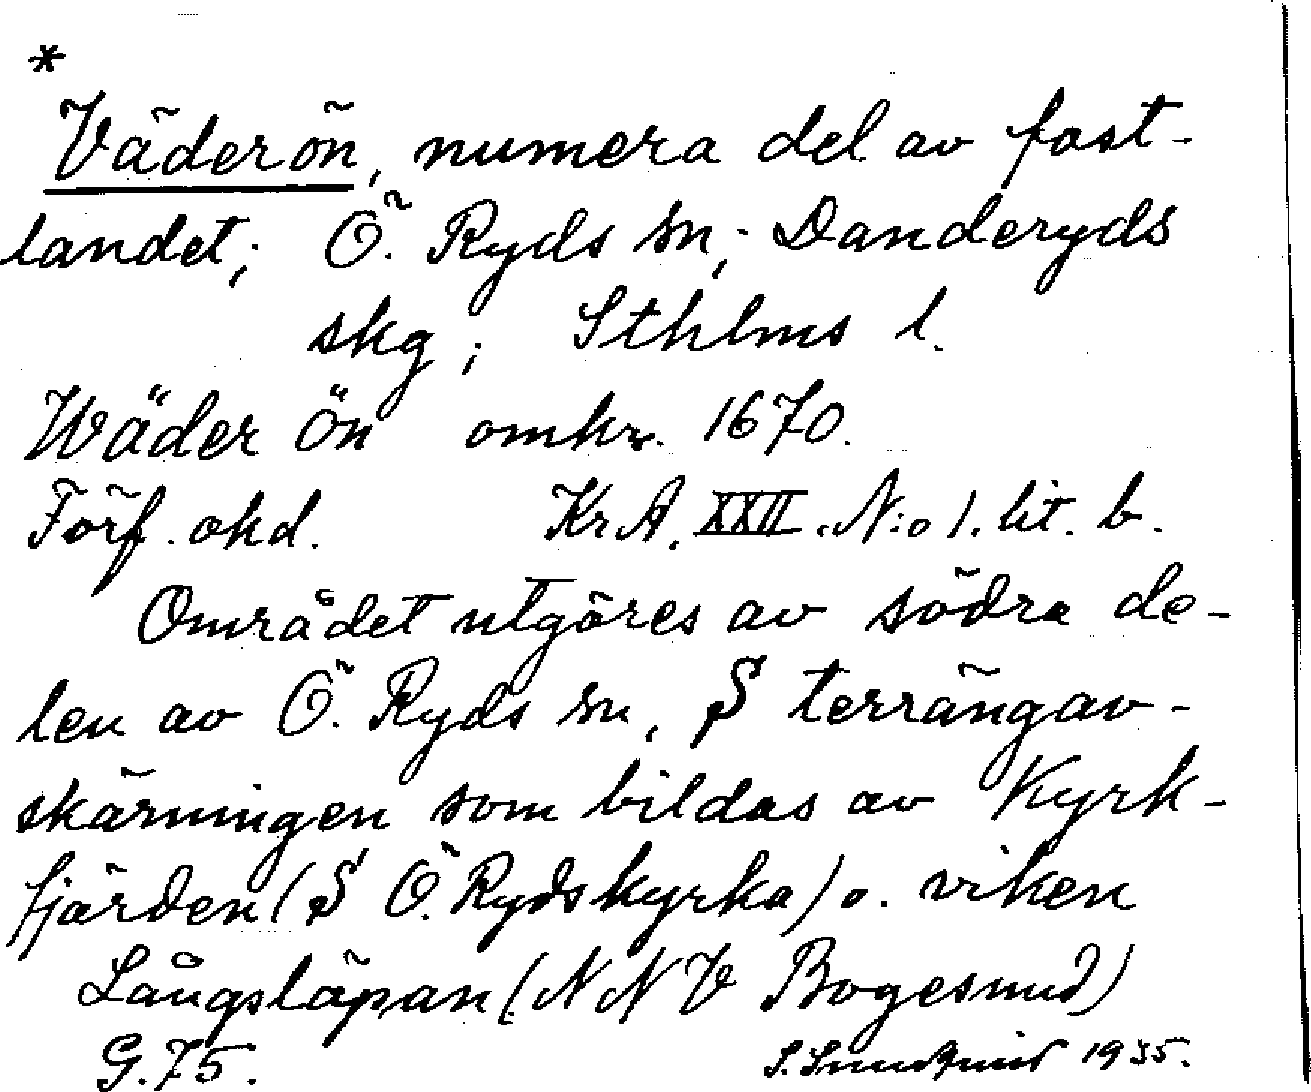 *
Väderön, numera del av fast-
landet; Ö. Ryds sn; Danderyds
skg; Sthlms l.
Wäder Ön omkr. 1670.
Förf. okd. KrA. XXII. N:o 1. lit. b.
Området utgöres av södra de-
len av Ö. Ryds sn, S terrängav-
skärningen som bildas av Kyrk-
fjärden (S Ö. Ryds kyrka) o. viken
Långsläpan (NNV Bogesund)
G. 75. 1935.